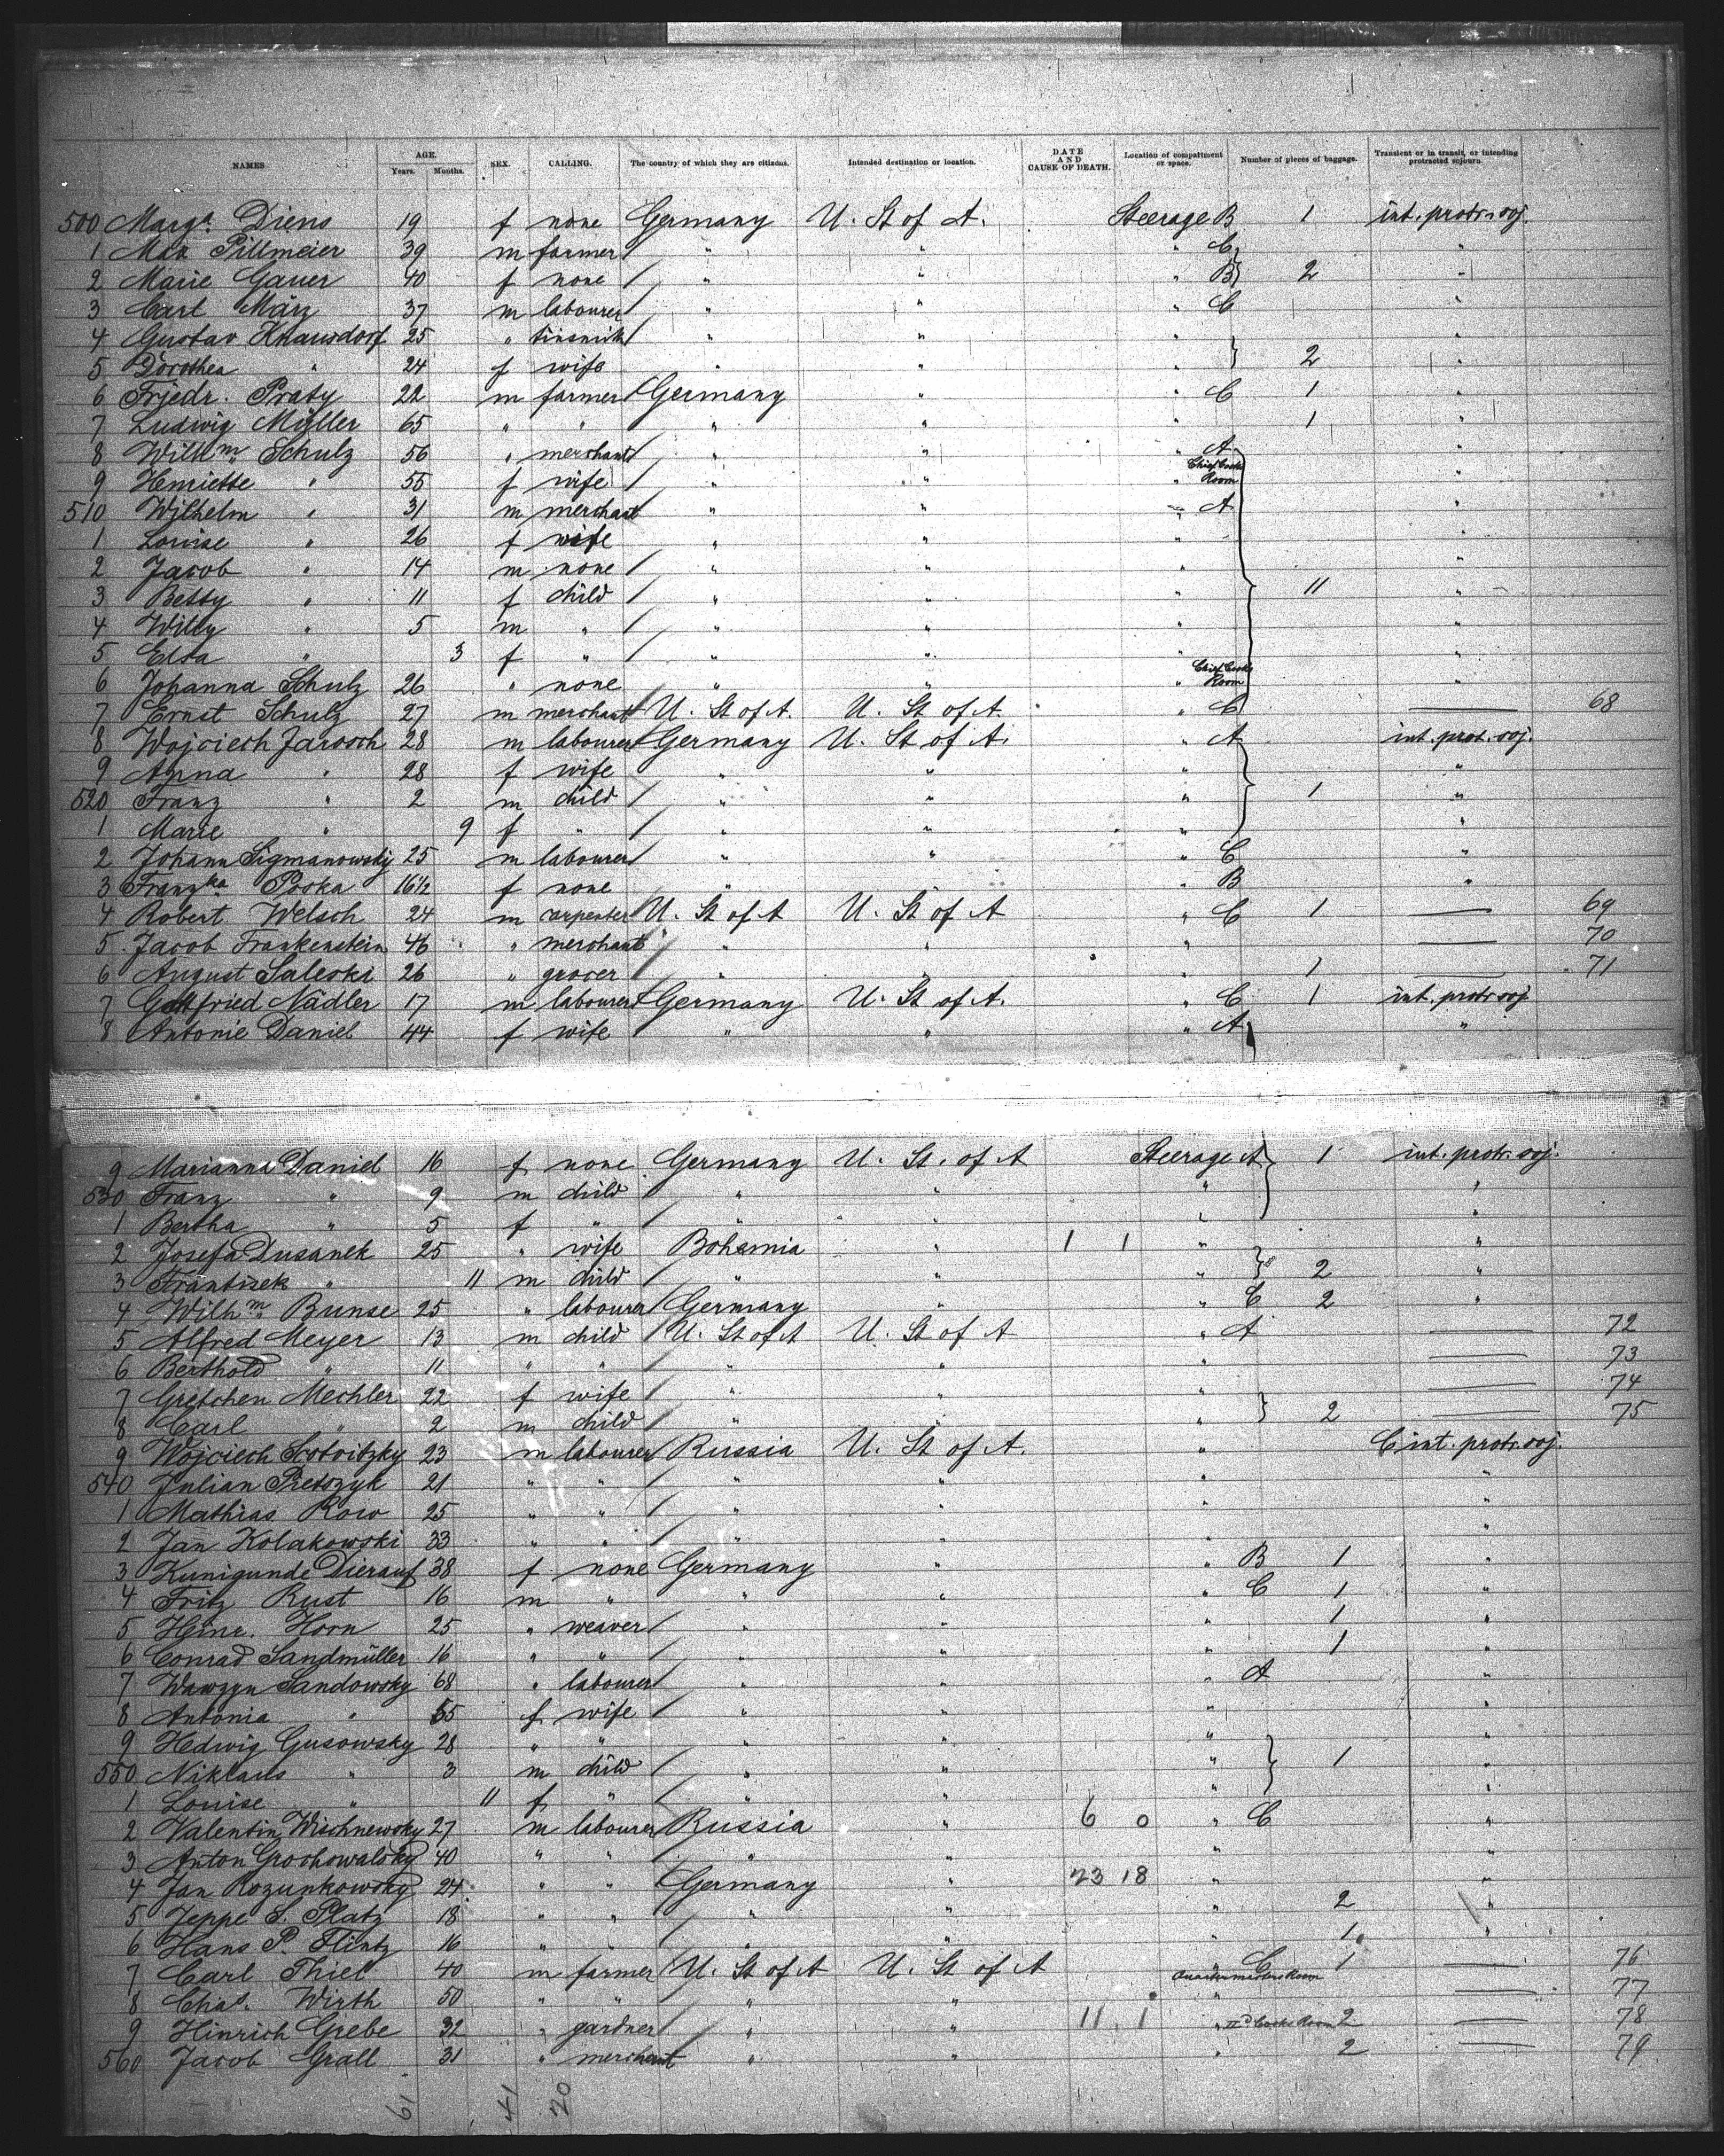 NAMES AGE. Years. Months. SEX. CALLING. The country of which they are citizens. Intended destination or location. DATE AND CAUSE OF DEATH. Location of compartment or space. Number of pieces of baggage. Transient or in transit, or intending protracted sojourn.
500 Marga. Diens 19 f none Germany U. St of A. Steerage B 1 int. protr. soj.
1 Max Pillmeier 39 m farmer " " " C "
2 Marie Gauer 40 f none " " " B 2 "
3 Carl März 37 m labourer " " " C "
4 Gustav Knausdorf 25 " tinsmith " " " "
5 Dorothea " 24 f wife " " " 2 "
6 Friedr. Praty 22 m farmer Germany " " C 1 "
7 Ludwig Müller 65 " " " " " 1 "
8 Wilhm. Schulz 56 " merchant " " " A "
9 Henriette " 55 f wife " " " Chief Cooks Room "
510 Wilhelm " 31 m merchant " " " A "
1 Louise " 26 f wife " " " "
2 Jacob " 14 m none " " " "
3 Betty " 11 f child " " " 11 "
4 Willy " 5 m " " " " "
5 Elsa " 3 f " " " " "
6 Johanna Schulz 26 " none " " " Chief Cooks Room "
7 Ernst Schulz 27 m merchant U. St of A. U. St of A. " C — 68
8 Wojciech Jarosch 28 m labourer Germany U. St of A. " A int. prot. soj.
9 Anna " 28 f wife " " " "
520 Franz " 2 m child " " " 1 "
1 Marie " 9 f " " " " "
2 Johann Sigmanowsky 25 m labourer " " " C "
3 Franzka Poska 16 1/2 f none " " " B "
4 Robert Welsch 24 m carpenter U. St of A U. St of A " C 1 — 69
5 Jacob Frankenstein 46 " merchant " " " — 70
6 August Saleski 26 " grocer " " 1 — 71
7 Gottfried Nädler 17 m labourer Germany U. St of A. " C 1 int. protr soj
8 Antonie Daniel 44 f wife " " " A "
9 Marianna Daniel 16 f none Germany U. St. of A Steerage A 1 int. protr. soj.
530 Franz " 9 m child " " " "
1 Bertha " 5 f " " " " "
2 Josefa Dusanek 25 " wife Bohemia " 1 1 " "
3 Frantisek " 11 m child " " " 2 "
4 Wilhm. Bunse 25 " labourer Germany " " C 2 "
5 Alfred Meyer 13 m child U. St of A U. St of A " A — 72
6 Berthold " 11 " " " " " — 73
7 Gretchen Mechler 22 f wife " " " — 74
8 Carl " 2 m child " " " 2 — 75
9 Wojciech 23 m labourer Russia U. St of A. " C int. protr. soj.
540 Julian Pietszyk 21 " " " " " "
1 Mathias Row 25 " " " " " "
2 Jan Kolakowski 33 " " " " " "
3 Kunigunde Dierauf 38 f none Germany " " B 1 "
4 Fritz Rust 16 m " " " " C 1 "
5 Heinr. Horn 25 " weaver " " " 1 "
6 Conrad Sandmüller 16 " " " " " 1 "
7 Wawzyn Sandowsky 68 " labourer " " " A "
8 Antonia " 55 f wife " " " "
9 Hedwig Gusowsky 28 " " " " " "
550 Niklaus " 3 m child " " " 1 "
1 Louise " 11 f " " " " "
2 Valentin Wischnewsky 27 m labourer Russia " 6 0 " C "
3 Anton Grochowalsky 40 " " " " " "
4 Jan Rozunkowsky 24 " " Germany " 23 18 " "
5 Jeppe S. Platz 18 " " " " " 2 "
6 Hans P. Flintz 16 " " " " " 1 "
7 Carl Thiel 40 m farmer U. St of A U. St of A " C 1 — 76
8 Chas. Wirth 50 " " " " Quartermasters Room — 77
9 Hinrich Grebe 32 " gardner " " 11 1 " IId Cooks Room 2 — 78
560 Jacob Grall 31 " merchant " " " 2 — 79
61 41 20